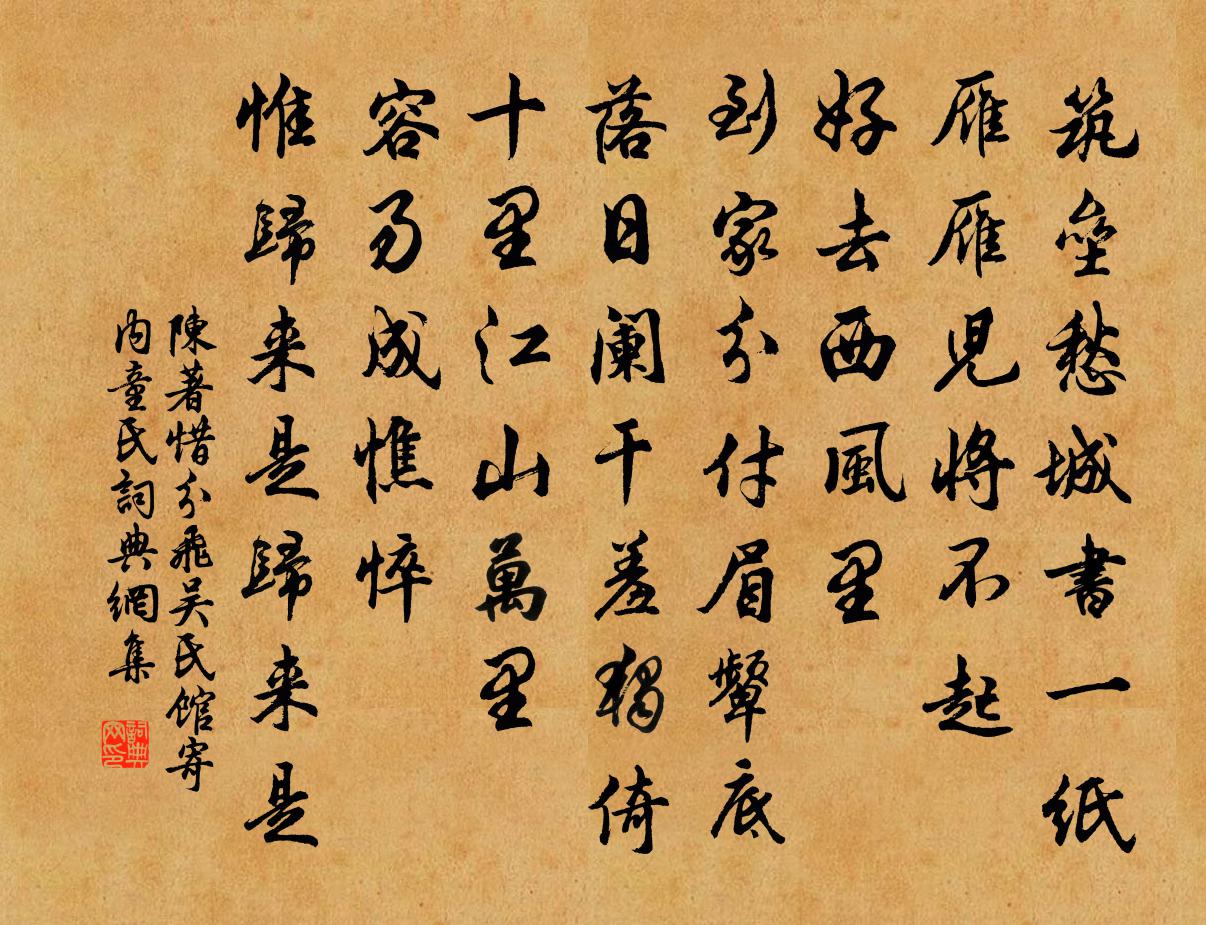 筑壘愁城書一紙
雁雁見將不起
好去西風里
到家分付眉顰底
落日阑干羞獨倚
十里江山萬里
容易成憔悴
惟歸来是歸来是
陳著惜分飛吴氏館寄
内童氏詞典網集
詞典网印